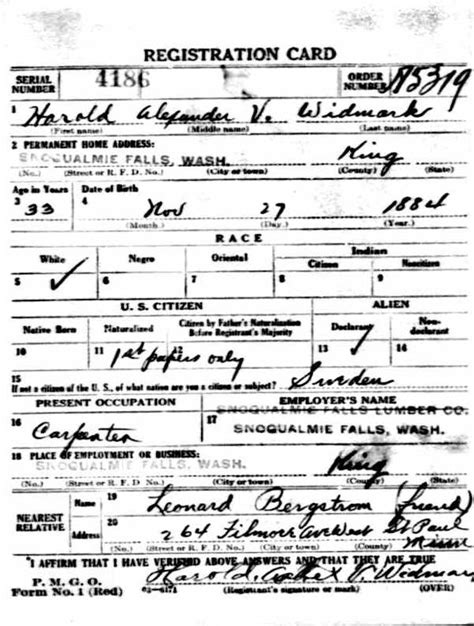 REGISTRATION CARD
SERIAL NUMBER 4186 ORDER NUMBER A5319
1 Harold Alexander V. Widmark
(First name) (Middle name) (Last name)
2 PERMANENT HOME ADDRESS:
SNOQUALMIE FALLS, WASH. King
(No.) (Street or R. F. D. No.) (City or town) (County) (State)
Age in Years Date of Birth
3 33 4 Nov 27 1884
(Month.) (Day.) (Year.)
RACE
White Negro Oriental Indian
Citizen Noncitizen
5 ✓ 6 7 8 9
U. S. CITIZEN ALIEN
Native Born Naturalized Citizen by Father's Naturalization Before Registrant's Majority Declarant Non-declarant
10 11 1st papers only 12 13 ✓ 14
15 If not a citizen of the U. S., of what nation are you a citizen or subject? Sweden
PRESENT OCCUPATION EMPLOYER'S NAME
16 Carpenter 17 SNOQUALMIE FALLS LUMBER CO.
SNOQUALMIE FALLS, WASH.
18 PLACE OF EMPLOYMENT OR BUSINESS:
SNOQUALMIE FALLS, WASH. King
(No.) (Street or R. F. D. No.) (City or town) (County) (State)
NEAREST RELATIVE Name 19 Leonard Bergstrom (friend)
Address 20 264 Filmore Ave West St Paul Minn
(No.) (Street or R. F. D. No.) (City or town) (County) (State)
I AFFIRM THAT I HAVE VERIFIED ABOVE ANSWERS AND THAT THEY ARE TRUE
P. M. G. O.
Form No. 1 (Red) 03-6171 Harold V. Widmark
(Registrant's signature or mark) (OVER)